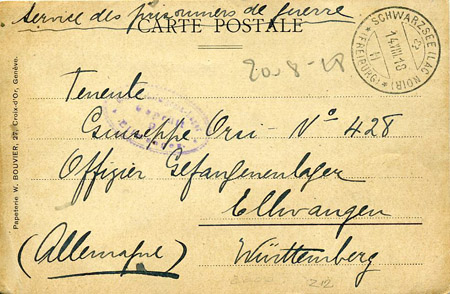 Service des prisonniers de guerre
CARTE POSTALE
SCHWARZSEE (LAC NOIR)
14.VIII.18
(FREIBURG)
20.8-18
Tenente
Giuseppe Orsi - No 428
Offizier Gefangenenlager
Ellwangen
(Allemagne) Württemberg
Papeterie W. BOUVIER, 27, Croix-d'Or, Genève.